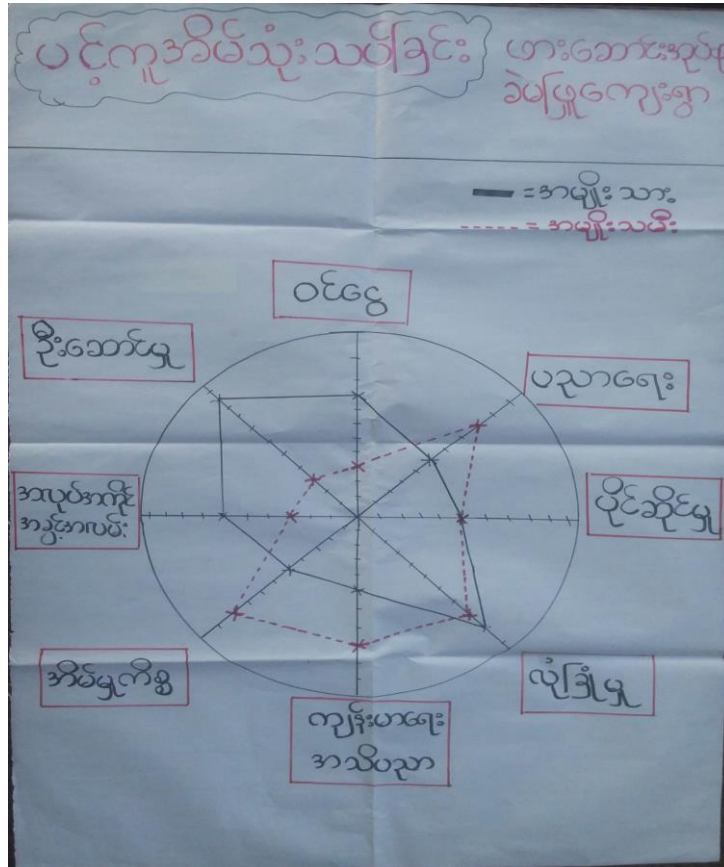 ပင့်ကူအိမ်သုံးသပ်ခြင်း
ဖားဆောင်းအုပ်စု
ခဲမဖြူကျေးရွာ
= အမျိုးသား
= အမျိုးသမီး
ဝင်ငွေ
ဦးဆောင်မှု
ပညာရေး
အလုပ်အကိုင်
အခွင့်အလမ်း
ပိုင်ဆိုင်မှု
အိမ်မှုကိစ္စ
လုံခြုံမှု
ကျန်းမာရေး
အသိပညာ